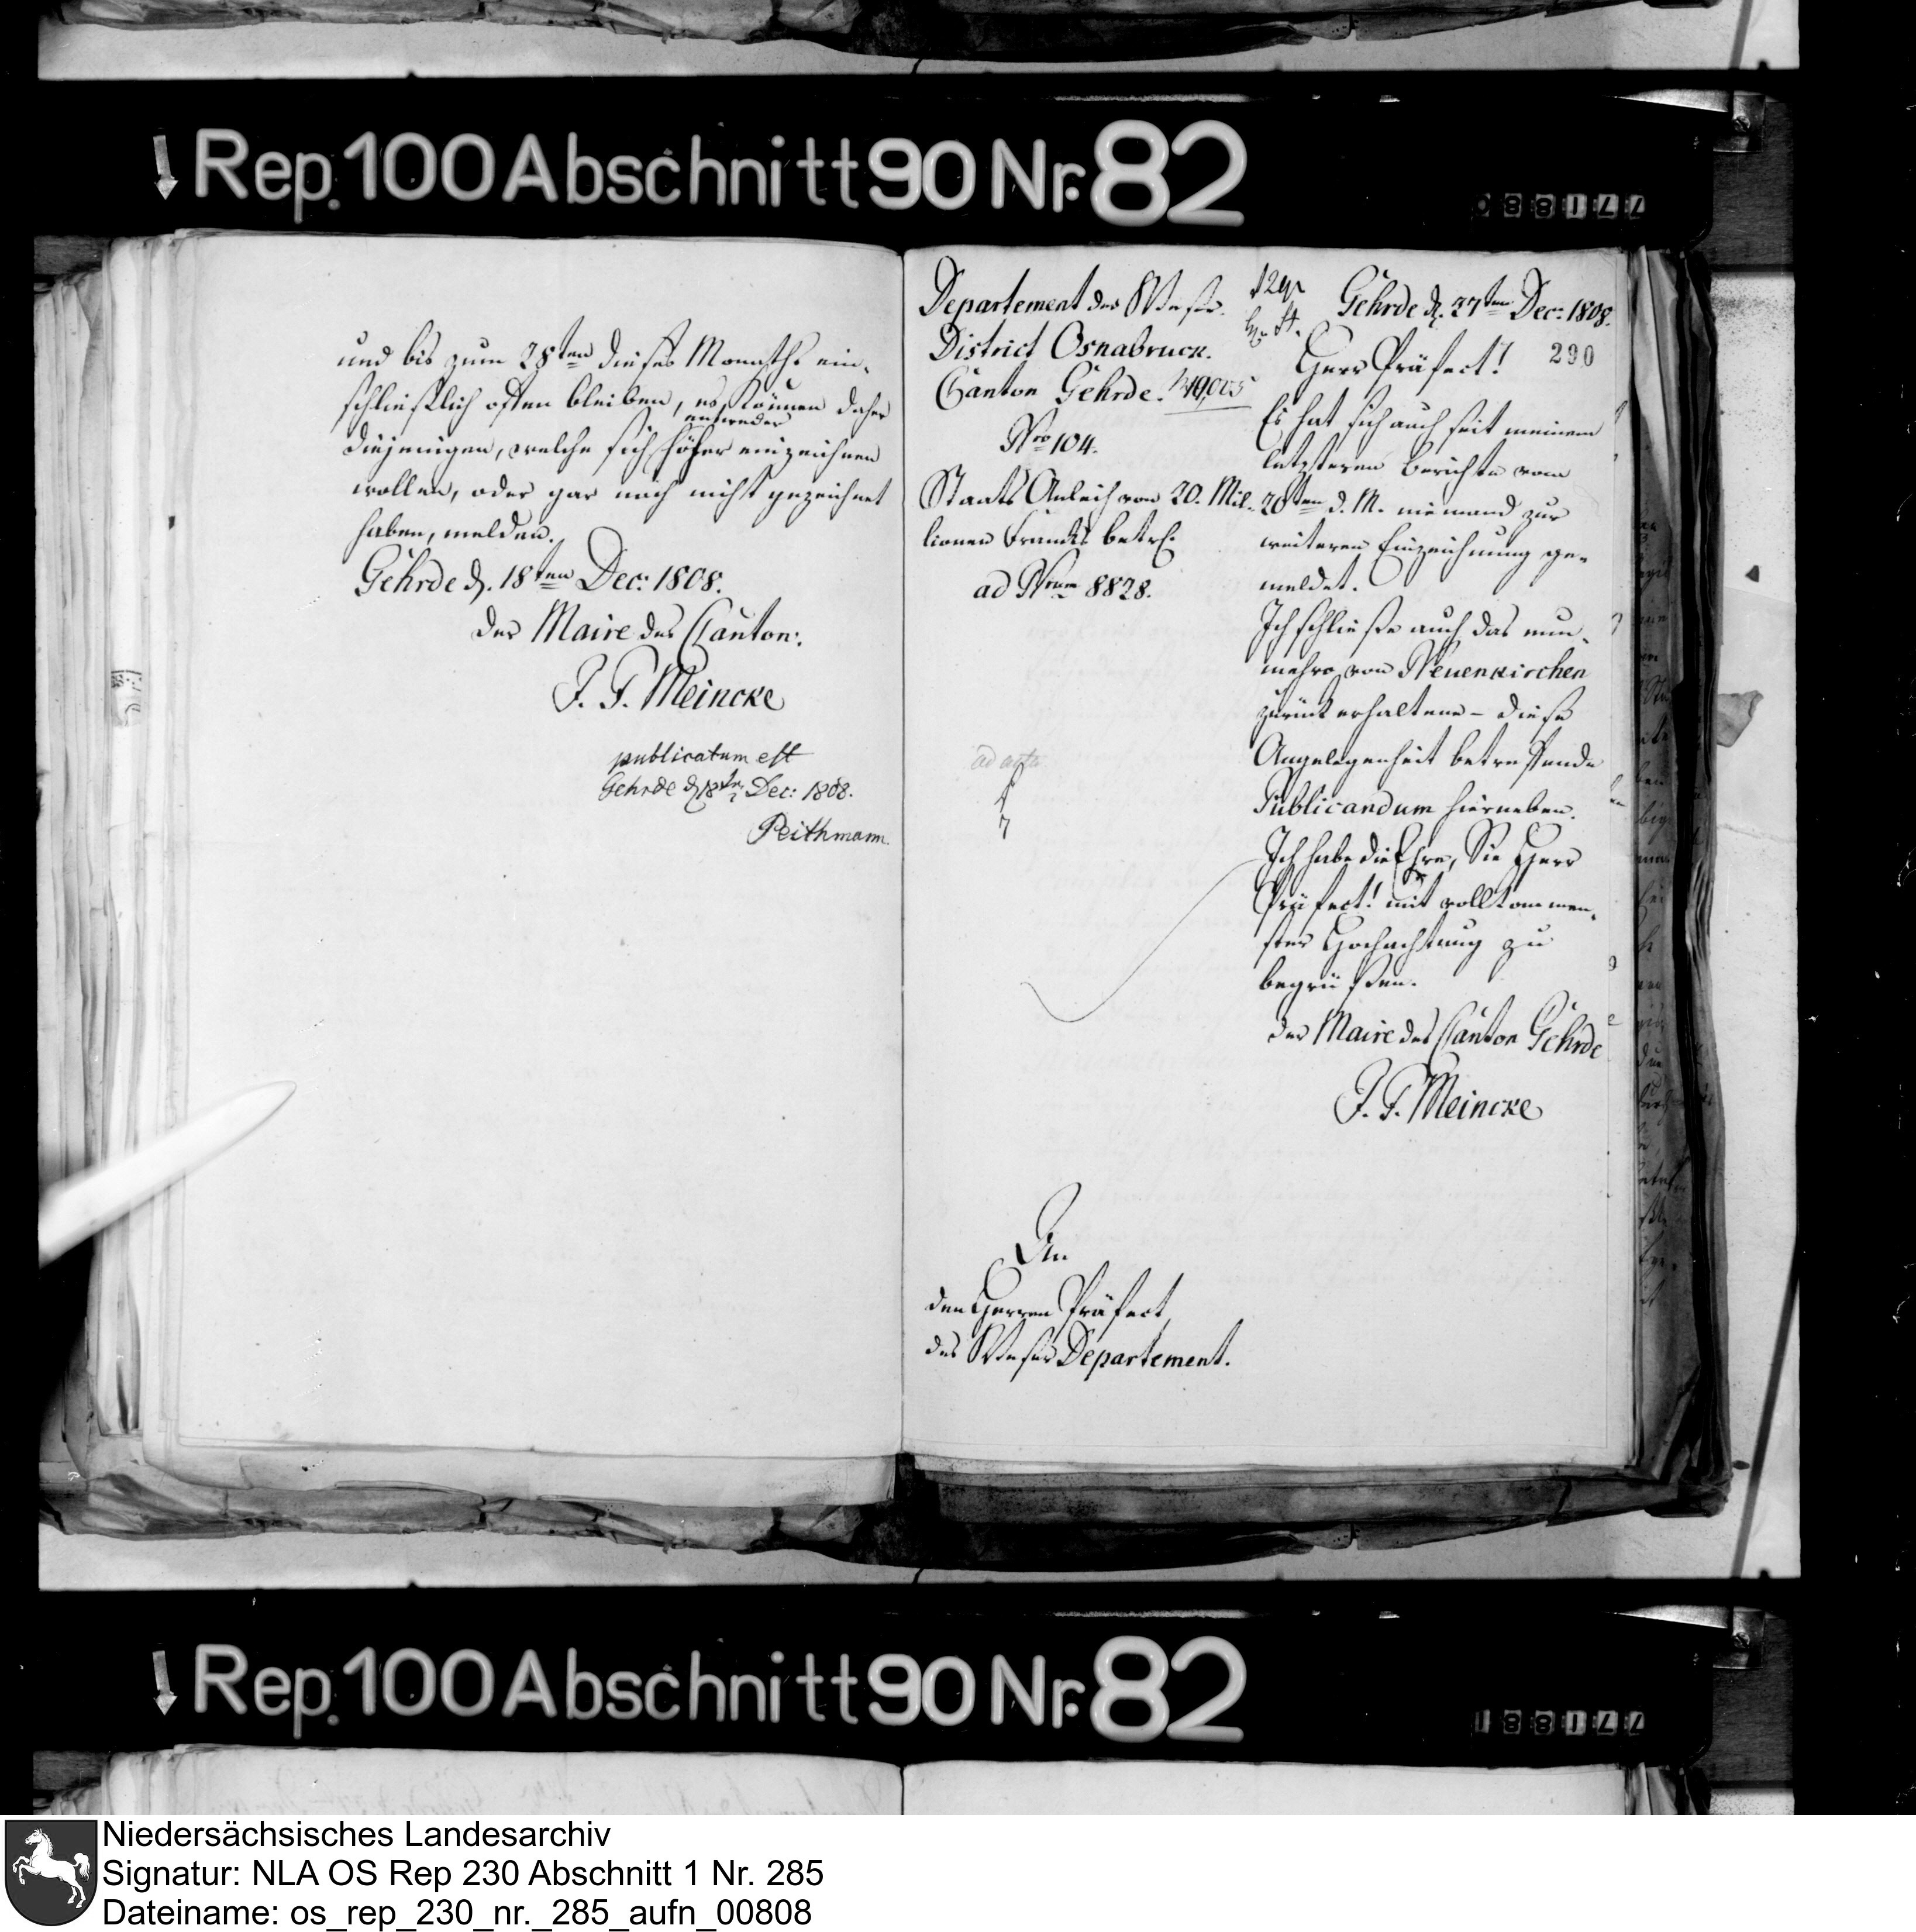 Rep. 100 Abschnitt 90 Nr. 82
771880
und bis zum 28ten dieses Monaths ein-
schließlich offen bleiben, es können daher
entweder
diejenigen, welche sich höher einzeichnen
wollen, oder gar noch nicht gezeichnet
haben, melden.
Gehrde d. 18ten Dec: 1808.
Der Maire des Canton:
J. F. Meincke
publicatum est
Gehrde d 18ten Dec: 1808.
Peithmann.
Departement der Weser.
District Osnabruck.
Canton Gehrde.
Nro 104.
Staats Anleih von 20. Mil-
lionen Franks betr.
ad Num 8828.
ad acta
Gehrde d. 27ten Dec: 1808.
290
Herr Präfect!
Es hat sich auch seit meinem
letzteren Berichte vom
20ten d. M. niemand zur
weiteren Einzeichnung ge-
meldet.
Ich schließe auch das nun-
mehro von Neuenkirchen
zurück erhaltene – diese
Angelegenheit betreffende
Publicandum hierneben.
Ich habe die Ehre, Sie Herr
Präfect! mit vollkommen-
ster Hochachtung zu
begrüßen.
Der Maire des Canton Gehrde
J. F. Meincke
An
den Herren Präfect
des Weser Departement.
Rep. 100 Abschnitt 90 Nr. 82
771881
Niedersächsisches Landesarchiv
Signatur: NLA OS Rep 230 Abschnitt 1 Nr. 285
Dateiname: os_rep_230_nr._285_aufn_00808